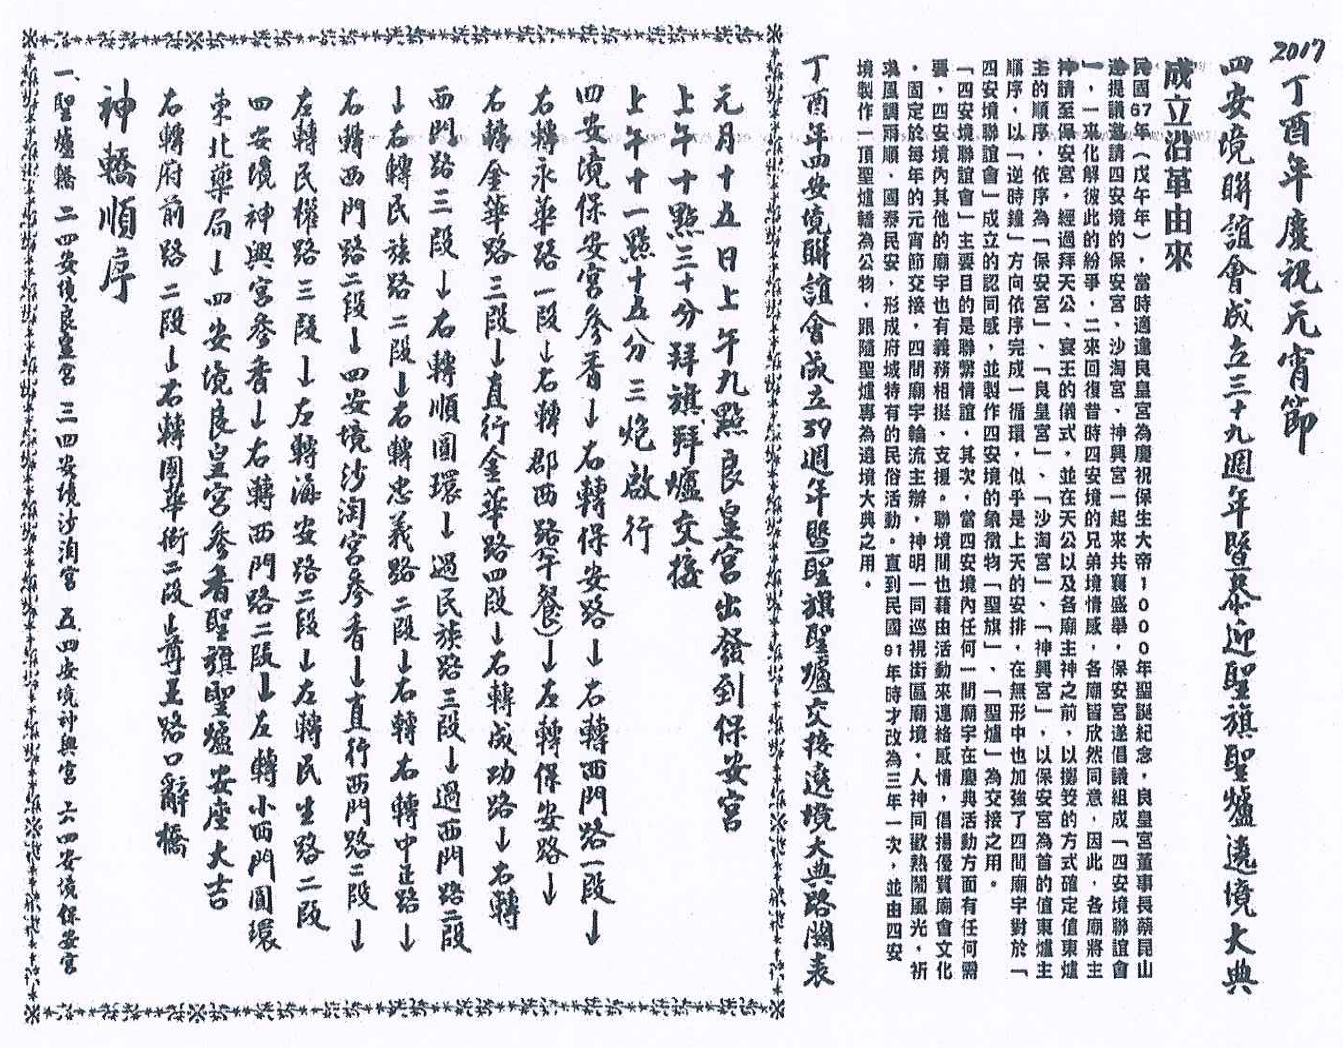 2017
丁酉年慶祝元宵節
四安境聯誼會成立三十九週年暨恭迎聖旗聖爐遶境大典
成立沿革由來
民國67年（戊午年），當時適逢良皇宮為慶祝保生大帝1000年聖誕紀念，良皇宮董事長蔡昆山
遂提議邀請四安境的保安宮、沙淘宮、神興宮一起來共襄盛舉，保安宮遂倡議組成「四安境聯誼會
」，一來化解彼此的紛爭，二來回復昔時四安境的兄弟境情感，各廟皆欣然同意，因此，各廟將主
神請至保安宮，經過拜天公、宴王的儀式，並在天公以及各廟主神之前，以擲筊的方式確定值東爐
主的順序，依序為「保安宮」、「良皇宮」、「沙淘宮」、「神興宮」，以保安宮為首的值東爐主
順序，以「逆時鐘」方向依序完成一循環，似乎是上天的安排，在無形中也加強了四間廟宇對於「
四安境聯誼會」成立的認同感，並製作四安境的象徵物「聖旗」、「聖爐」為交接之用。
「四安境聯誼會」主要目的是聯繫情誼，其次，當四安境內任何一間廟宇在慶典活動方面有任何需
要，四安境內其他的廟宇也有義務相挺、支援。聯境間也藉由活動來連絡感情，倡揚優質廟會文化
，固定於每年的元宵節交接，四間廟宇輪流主辦，神明一同巡視街區廟境，人神同歡熱鬧風光，祈
求風調雨順、國泰民安，形成府城特有的民俗活動。直到民國91年時才改為三年一次，並由四安
境製作一頂聖爐轎為公物，跟隨聖爐專為遶境大典之用。
丁酉年四安境聯誼會成立39週年暨聖旗聖爐交接遶境大典路關表
元月十五日上午九點良皇宮出發到保安宮
上午十點三十分拜旗拜爐交接
上午十一點十五分三炮啟行
四安境保安宮參香↓右轉保安路↓右轉西門路一段↓
右轉永華路一段↓右轉郡西路(午餐)↓左轉保安路↓
右轉金華路三段↓直行金華路四段↓右轉成功路↓右轉
西門路三段↓右轉順圓環↓過民族路三段↓過西門路二段
↓右轉民族路二段↓右轉忠義路二段↓右轉右轉中正路↓
右轉西門路二段↓四安境沙淘宮參香↓直行西門路二段↓
左轉民權路三段↓左轉海安路二段↓左轉民生路二段
四安境神興宮參香↓右轉西門路二段↓左轉小西門圓環
東北藥局↓四安境良皇宮參香聖旗聖爐安座大吉
右轉府前路二段↓右轉開華街二段↓尊王路口辭橋
神轎順序
一、聖爐轎 二四安境良皇宮 三四安境沙淘宮 五四安境神興宮 六四安境保安宮